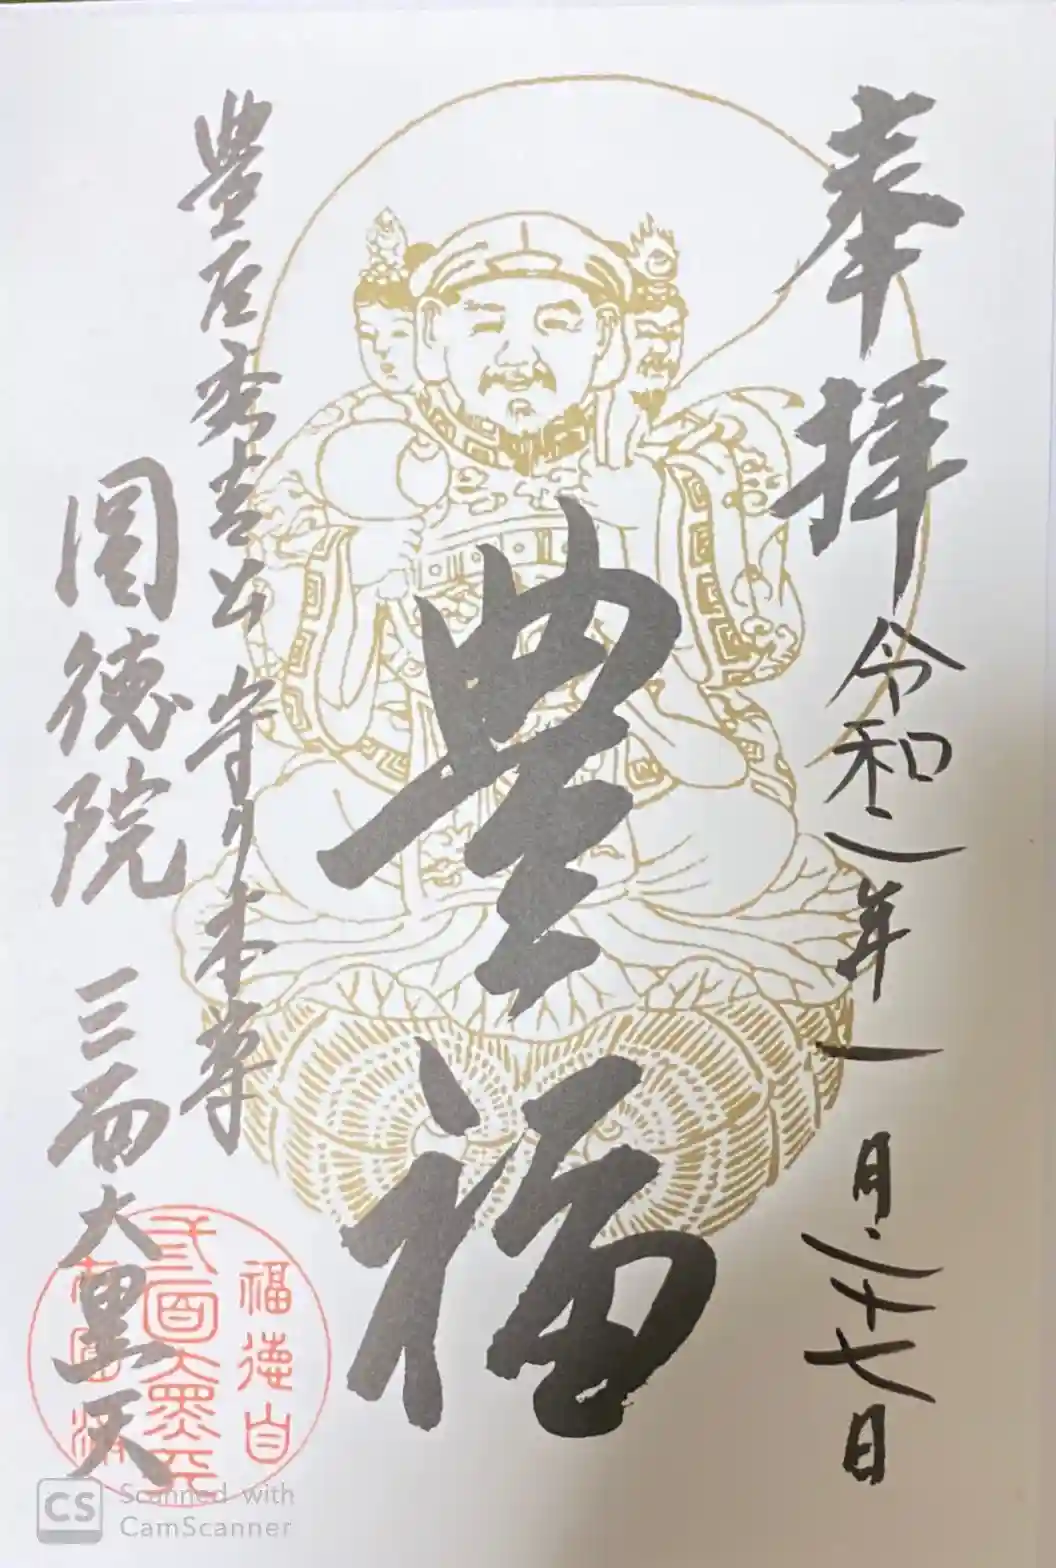 奉拝 令和二年一月二十七日
豊福
豊臣秀吉公 守り本尊
圓徳院 三面大黒天
福徳自
三面大黒天
Scanned with
CamScanner